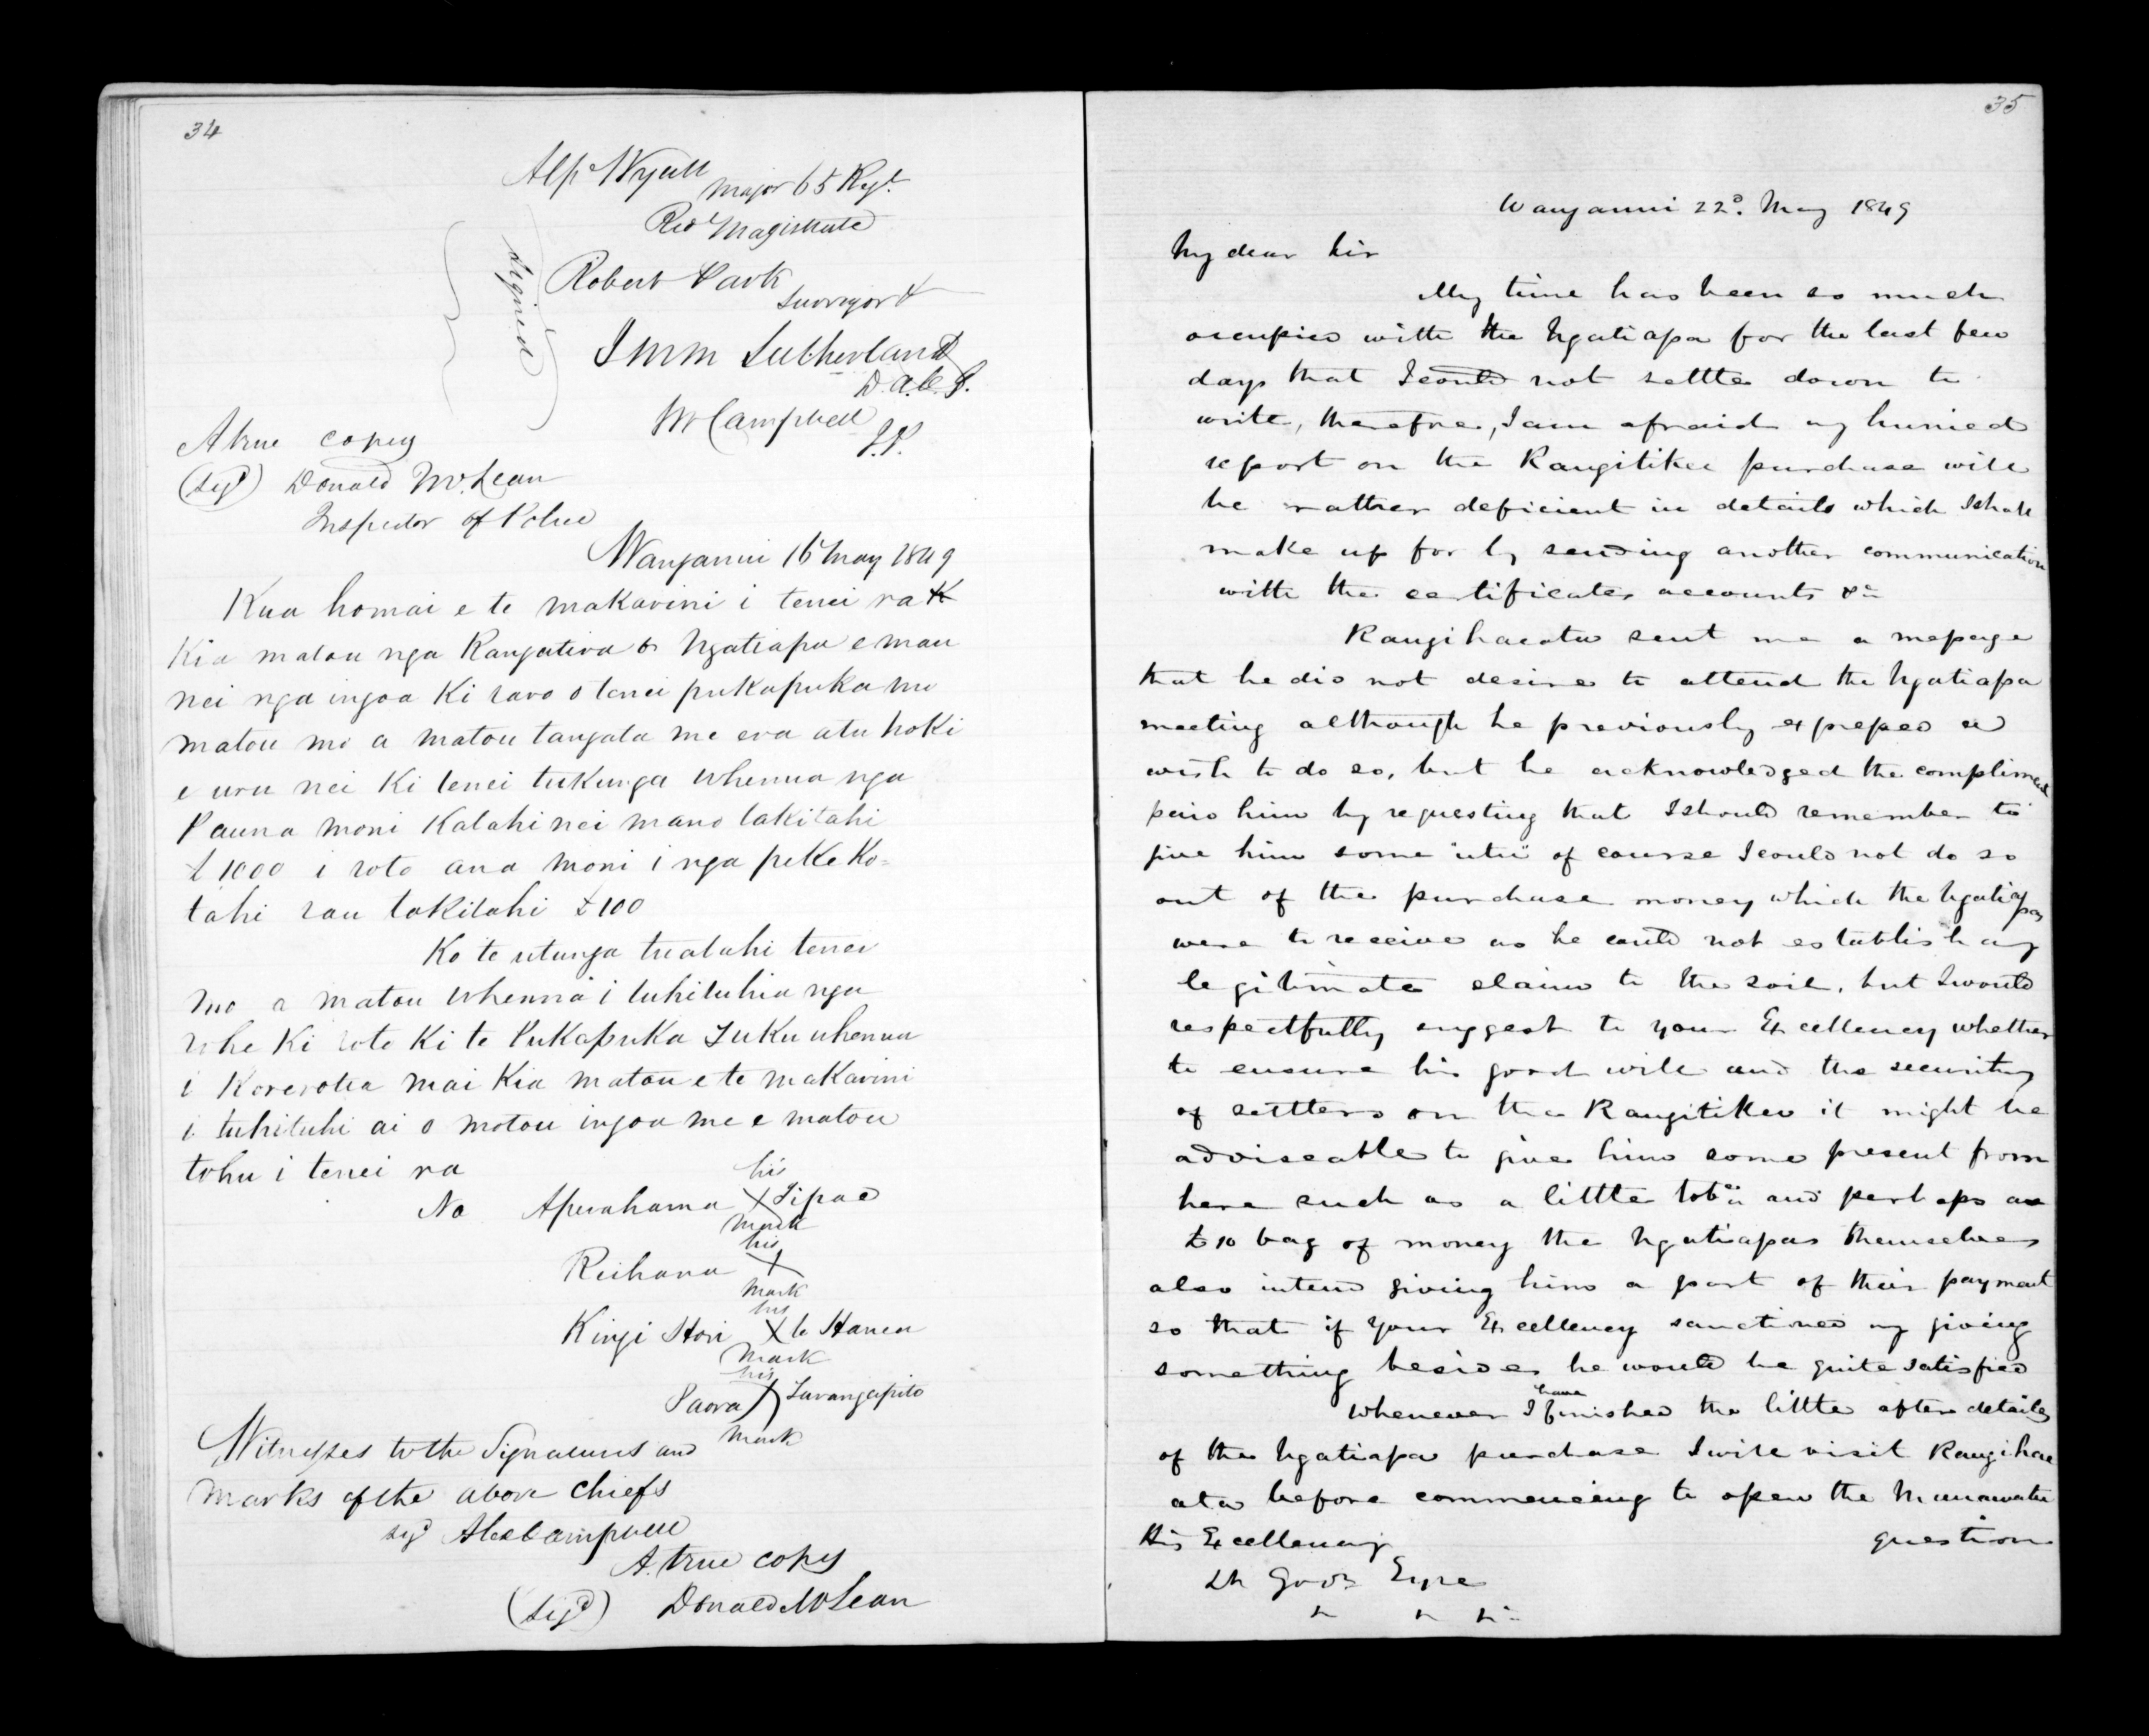 34
Alfd Wyatt
Major 65 Regt.
Res Magistrate
Robert Park
Surveyor &
signed
J Mm Sutherland
D.A.C.G.
M Campbell
J.P.
A true copy
(sigd) Donald McLean
Inspector of Police
Wanganui 16 May 1849
Kua homai e te makarini i tenei ra
Kia matou nga Rangatira o Ngatiapa e mau
nei nga ingoa Ki raro o tenei pukapuka mo
matou mo a matou tangata me era atu hoki
e uru nei Ki tenei tukunga whenua nga
Pauna moni Katahi nei mano takitahi
£1000 i roto ana moni i nga peke Ko=
tahi rau takitahi £100
Ko te utunga tuatahi tenei
mo a matou whenua i tuhituhia nga
rohe Ki roto Ki te Pukapuka Tuku whenua
i Korerotia mai Kia matou e te makarini
i tuhituhi ai o matou ingoa me e matou
tohu i tenei ra
his
No Aperahama X Tipae
mark
his
Reihana X
mark
his
Kingi Hori X te Hanea
mark
his
Paora X Turangapito
mark
Witnesses to the Signatures and
marks of the above chiefs
sigd Alex Campbell
A true copy
(sigd) Donald McLean
35
Wanganui 22d. May 1849
My dear Sir
My time has been so much
occupied with the Ngatiapa for the last few
days that I could not settle down to
write, therefore, I am afraid my hurried
report on the Rangitikei purchase will
be rather deficient in details which I shall
make up for by sending another communication
with the certificates accounts &c
Rangihaeata sent me a message
that he did not desire to attend the Ngatiapa
meeting although he previously expressed a
wish to do so, but he acknowledged the compliment
paid him by requesting that I should remember to
give him some "utu" of course I could not do so
out of the purchase money which the Ngatiapas
were to receive as he could not establish any
legitimate claim to the soil, but I would
respectfully suggest to your Excellency whether
to ensure his good will and the security
of settlers on the Rangitikei it might be
adviseable to give him some present from
here such as a little tobco and perhaps a
£10 bag of money the Ngatiapas themselves
also intend giving him a part of their payment
so that if Your Excellency sanctioned my giving
something besides he would be quite satisfied
Whenever I have finished the little after details
of the Ngatiapa purchase I will visit Rangihae
ata before commencing to open the Manawatu
question
His Excellency
Lt Govr Eyre